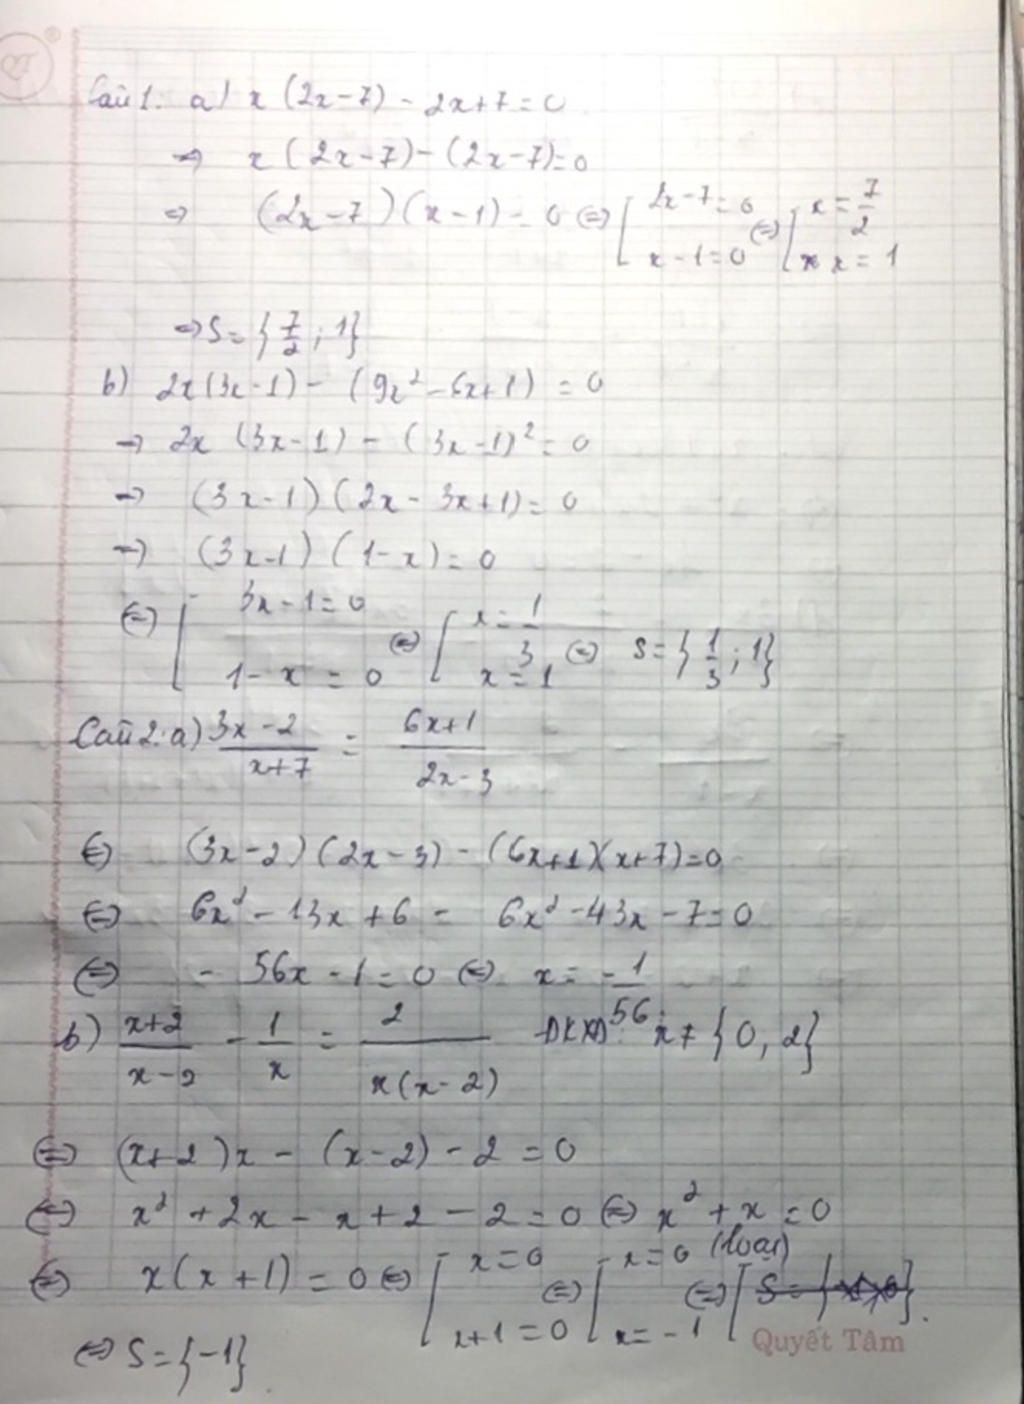 Câu 1. a) x (2x-7) - 2x+7=0
=> x (2x-7)-(2x-7)=0
=> (2x-7)(x-1)=0 <=> [ 2x-7=0 x-1=0 <=> [ x=7/2 x=1
=> S={7/2;1}
b) 2x(3x-1)-(9x²-6x+1)=0
=> 2x (3x-1)-(3x-1)²=0
=> (3x-1)(2x-3x+1)=0
=> (3x-1)(1-x)=0
<=> [ 3x-1=0 1-x=0 <=> [ x=1/3 x=1 <=> S={1/3;1}
Câu 2: a) (3x-2)/(x+7) = (6x+1)/(2x-3)
<=> (3x-2)(2x-3)-(6x+1)(x+7)=0
<=> 6x²-13x+6 - 6x²-43x-7=0
<=> -56x-1=0 <=> x=-1/56
b) (x+2)/(x-2) - 1/x = 2/(x(x-2)) ĐKXĐ: x≠{0,2}
<=> (x+2)x-(x-2)-2=0
<=> x²+2x-x+2-2=0 <=> x²+x=0
<=> x(x+1)=0 <=> [ x=0 x+1=0 <=> [ x=0 (loại) x=-1 <=> [
<=> S={-1}
Quyết Tâm